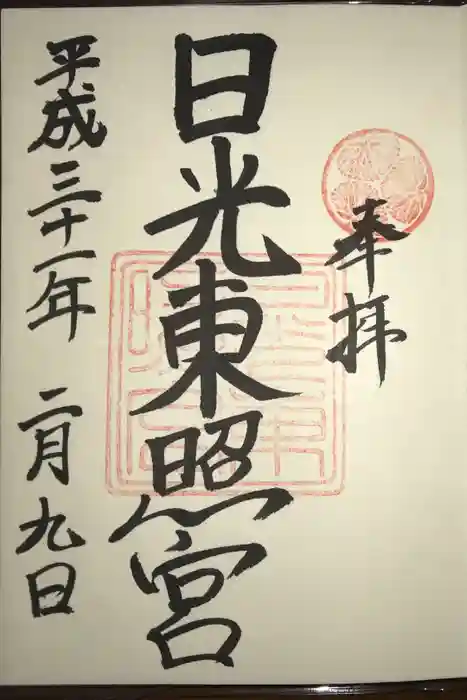 奉拝
日光東照宮
平成三十一年 二月九日